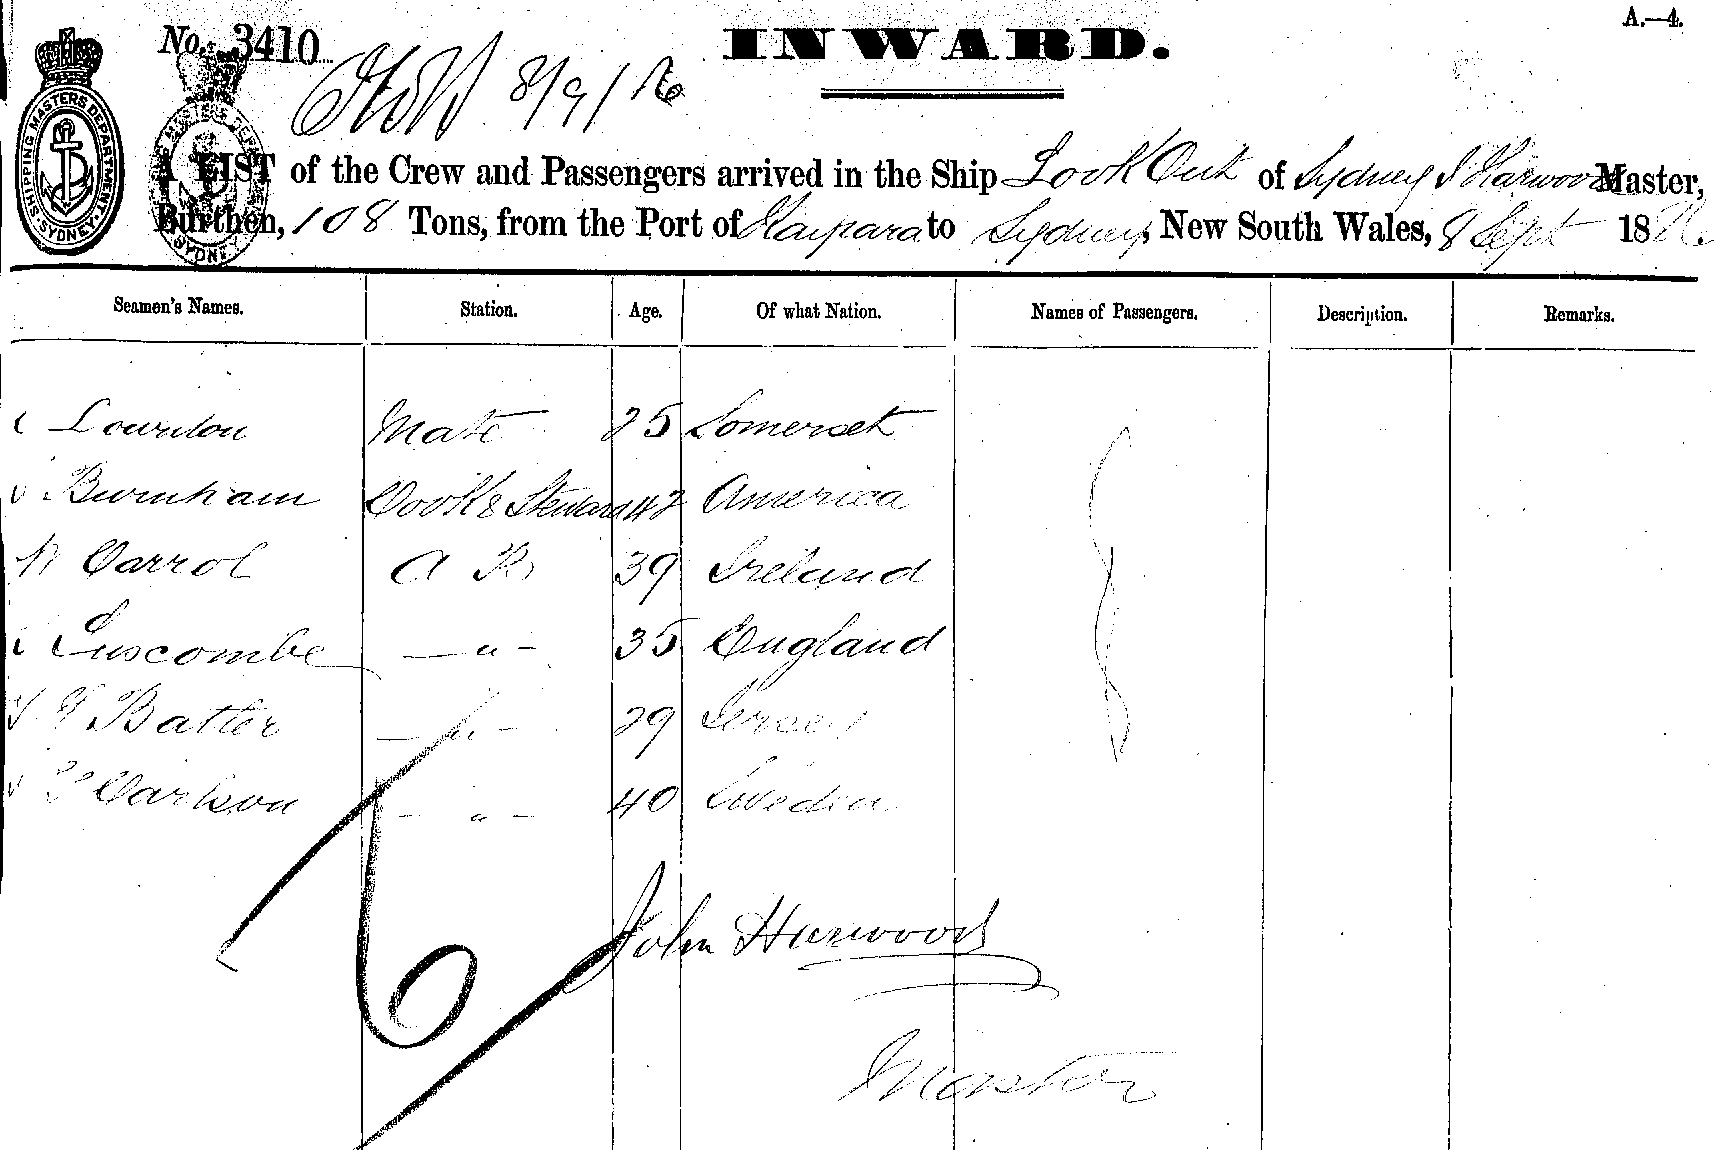 A.—4.
No. 3410
INWARD.
8/9/76
SHIPPING MASTERS DEPARTMENT SYDNEY
A LIST of the Crew and Passengers arrived in the Ship Look Out of Sydney J Harwood Master,
Burthen, 108 Tons, from the Port of Kaipara to Sydney, New South Wales, 8 Sept 1876
Seamen's Names. Station. Age. Of what Nation. Names of Passengers. Description. Remarks.
Mate 25 Somerset
Burnham Cook & Steward 42 America
Carrol A B 39 Ireland
Luscombe — " — 35 England
Batler — " — 29
Carlson — " — 40 Sweden
6
John Harwood
Master